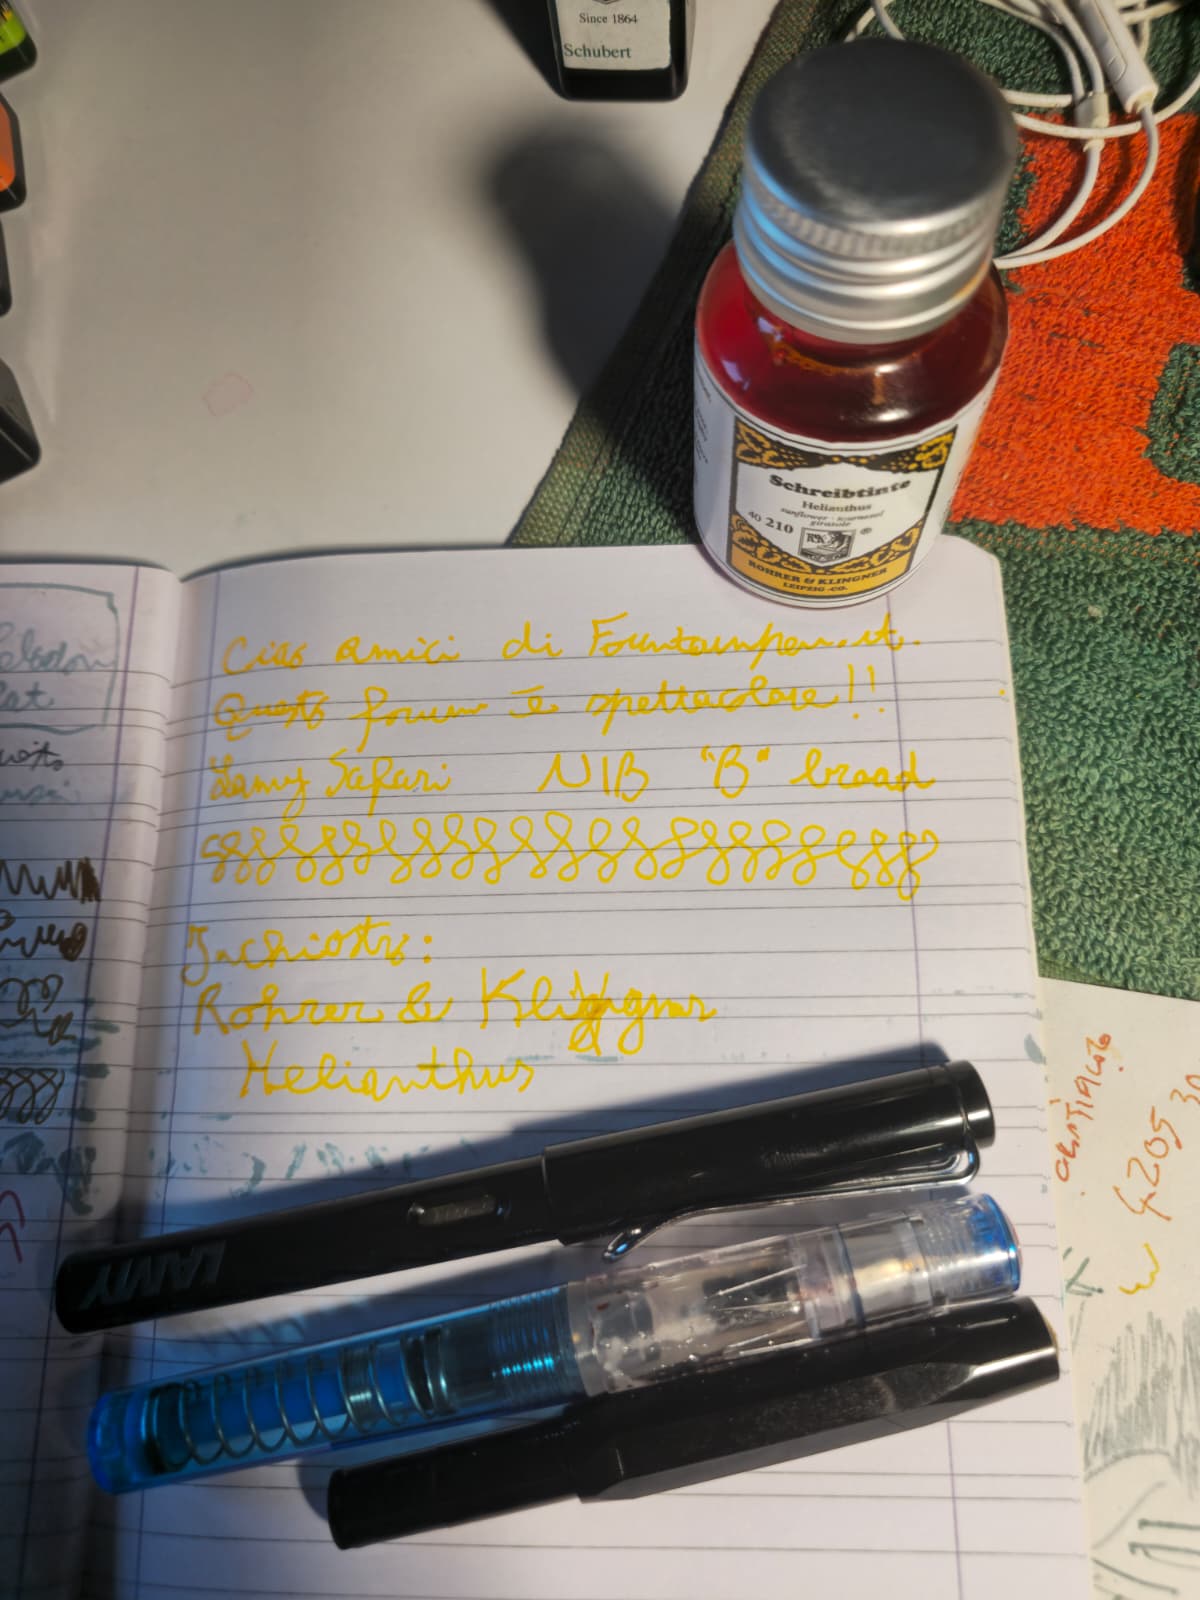 Since 1864
Schubert
Schreibtinte
Helianthus
sunflower · tournesol
girasole
40 210
R&K
®
ROHRER & KLINGNER
LEIPZIG CO.
Ciao amici di Fountainpen.it.
Questo forum è spettacolare!!
Lamy Safari NIB "B" broad
Inchiostro:
Rohrer & Klingner
Helianthus
LAMY
4205 30